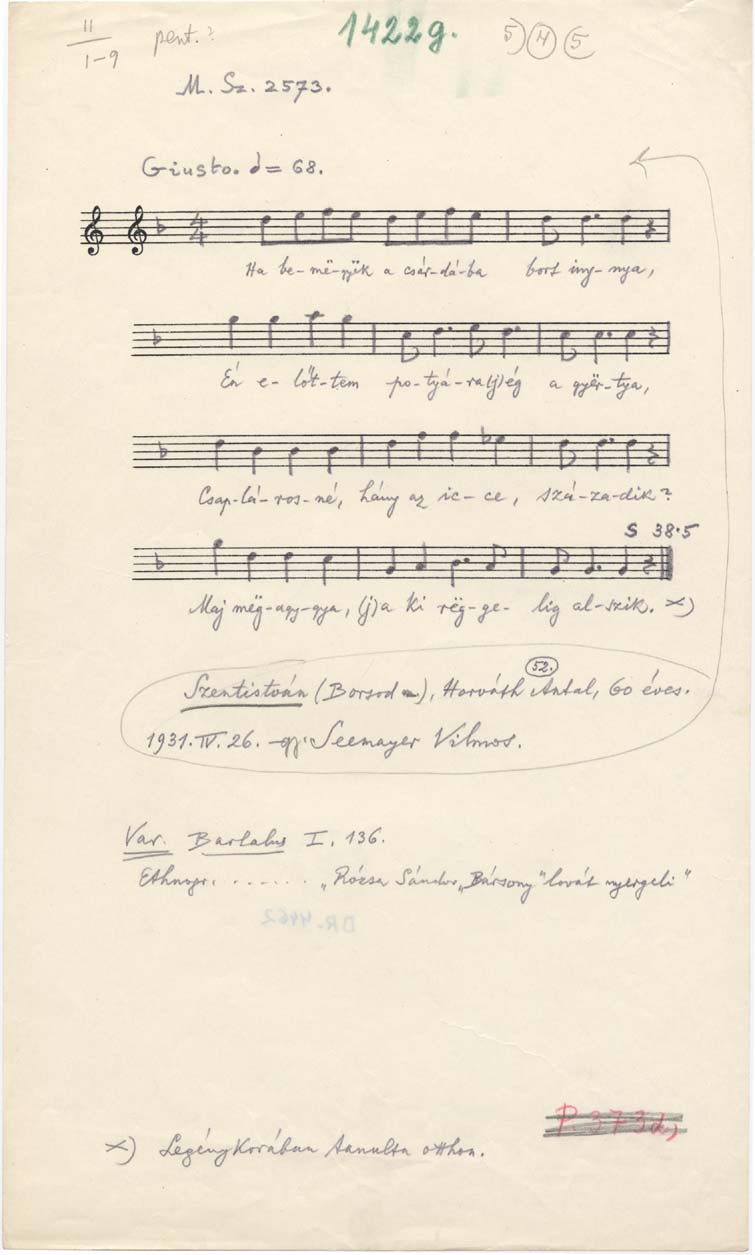 11
1-9 pent.? 1422g. 5) 4 5
M. Sz. 2573.
Giusto. d = 68.
4
4
Ha be-më-gyёk a csár-dá-ba bort iny-nya,
Én e-lőt-tem po-tyá-ra(j)ég a gyër-tya,
Csap-lá-ros-né, hány az ic-ce, szá-za-dik?
S 38.5
Maj mëg-agy-gya, (j)a ki rëg-ge-lig al-szik. x)
52.
Szentistván (Borsod), Horváth Antal, 60 éves.
1931. IV. 26. gy. Seemayer Vilmos.
Var. Bartalus I, 136.
Ethnogr. ...... "Rózsa Sándor „Bársony" lovát nyergeli"
DR. 4462
P. 373d,
x) Legénykorában tanulta otthon.